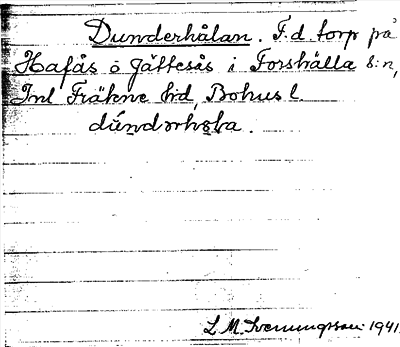 Dunderhålan. F.d. torp på
Hafås o Gättesås i Forshälla s:n,
Inl Fräkne hd, Bohus l.
dúndərhɷla.
S. M. Svenungsson 1941.